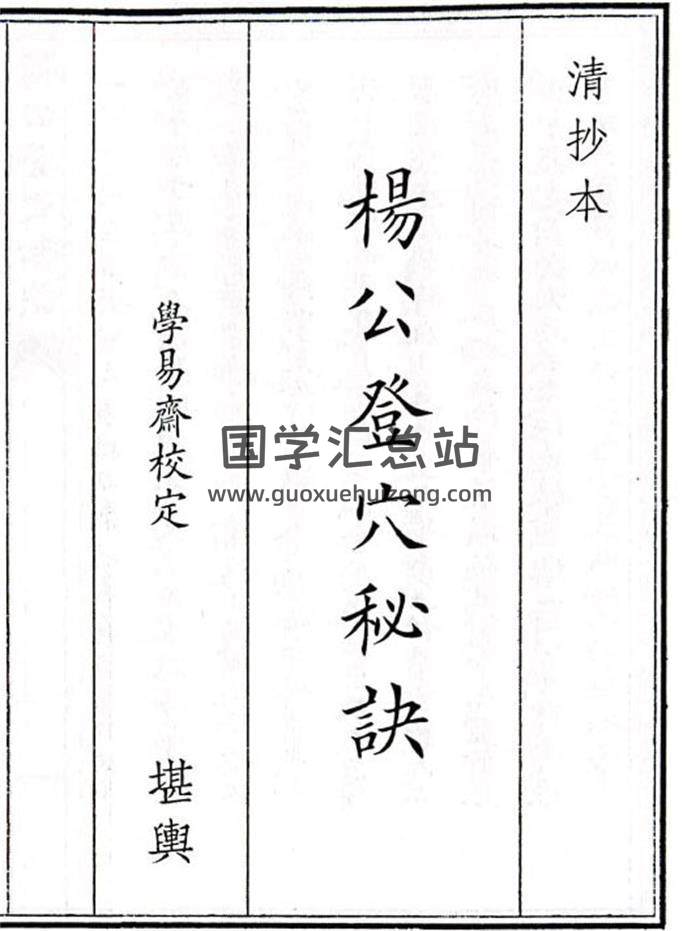 清抄本
楊公登穴秘訣
學易齋校定
堪輿
国学汇总站
www.guoxuehuizong.com